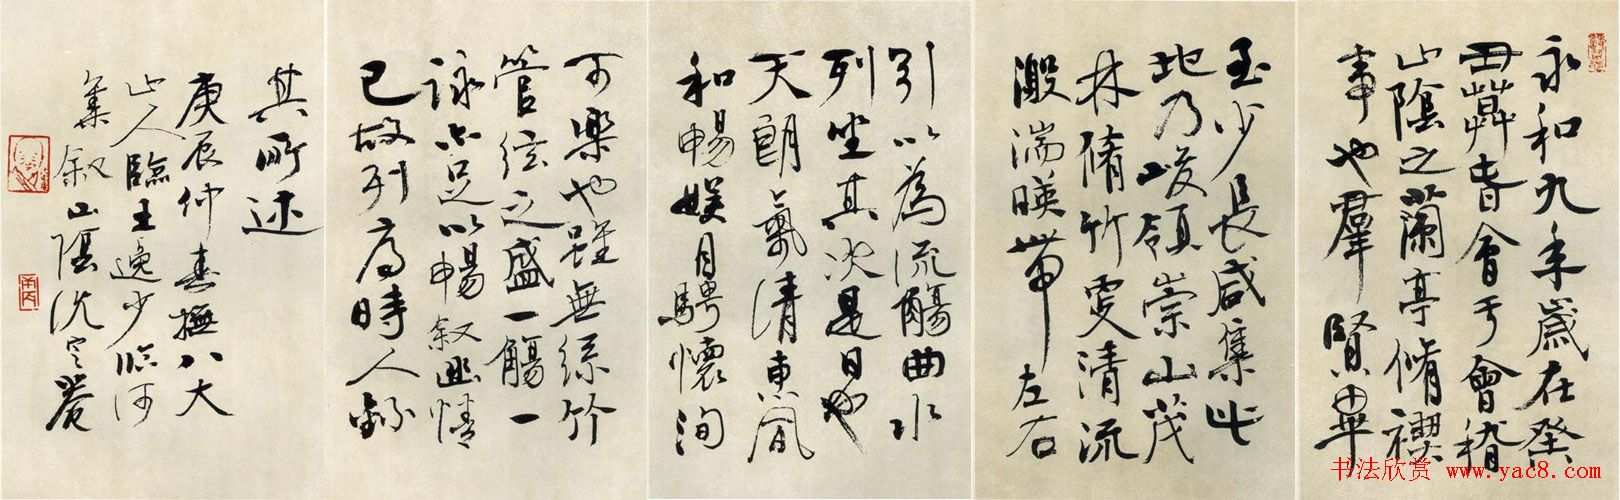 永和九年歲在癸
丑暮春會于會稽
山陰之蘭亭脩禊
事也羣賢畢
至少長咸集此
地乃峻領崇山茂
林脩竹更清流
激湍暎帶左右
引以為流觴曲水
列坐其次是日也
天朗氣清惠風
和暢娱目騁懷洵
可樂也雖無絲竹
管絃之盛一觴一
詠亦足以暢叙幽情
已故列序時人錄
其所述
庚辰仲春撫八大
山人臨王逸少臨河
集叙山陰沈定菴
书法欣赏 www.yac8.com